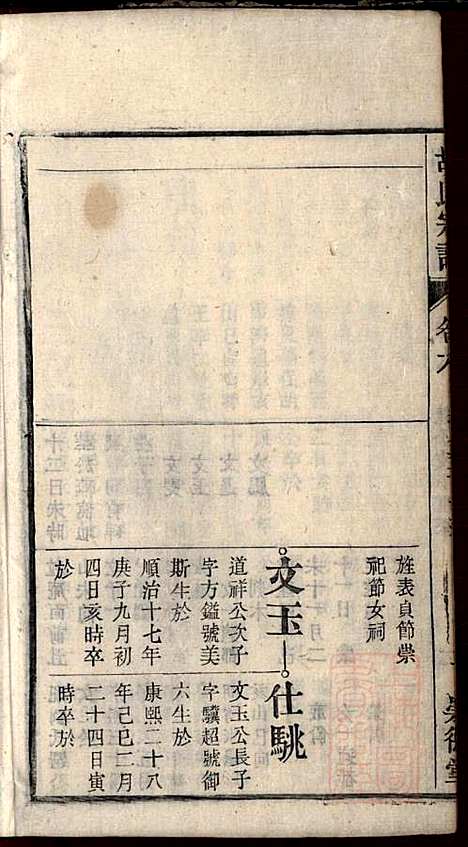 旌表貞節崇
祀節女祠
文玉
道祥公次子
字方鎰號美
斯生於
順治十七年
庚子九月初
四日亥時卒
於
仕駣
文玉公長子
字驥超號御
六生於
康熙二十八
年己巳二月
二十四日寅
時卒於